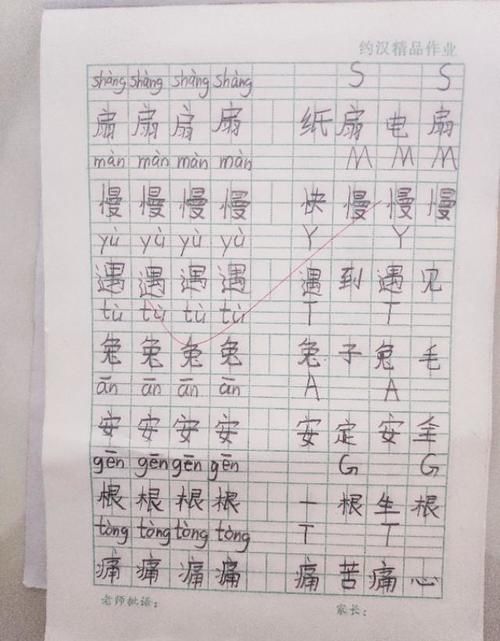 约汉精品作业
shàng shàng shàng shàng S S
扇 扇 扇 扇 纸 扇 电 扇
màn màn màn màn M M M
慢 慢 慢 慢 快 慢 慢 慢
yù yù yù yù Y Y
遇 遇 遇 遇 遇 到 遇 见
tù tù tù tù T T
兔 兔 兔 兔 兔 子 兔 毛
ān ān ān ān A A
安 安 安 安 安 定 安 全
gēn gēn gēn gēn G G
根 根 根 根 一 根 生 根
tòng tòng tòng tòng T T
痛 痛 痛 痛 痛 苦 痛 心
老师批语： 家长：